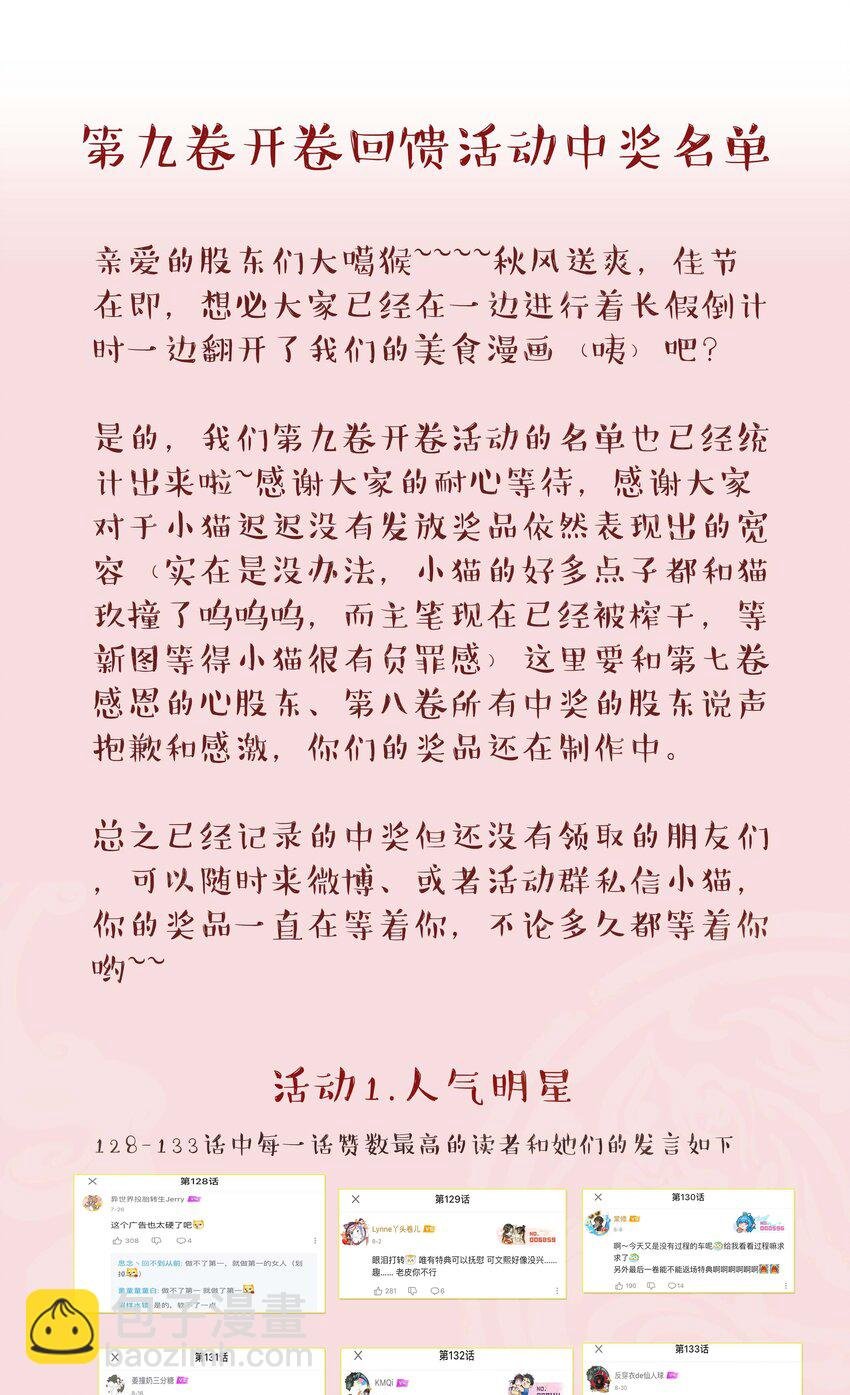 第九卷开卷回馈活动中奖名单
亲爱的股东们大噶猴~~~~秋风送爽，佳节
在即，想必大家已经在一边进行着长假倒计
时一边翻开了我们的美食漫画（咦）吧？
是的，我们第九卷开卷活动的名单也已经统
计出来啦~感谢大家的耐心等待，感谢大家
对于小猫迟迟没有发放奖品依然表现出的宽
容（实在是没办法，小猫的好多点子都和猫
玖撞了呜呜呜，而主笔现在已经被榨干，等
新图等得小猫很有负罪感）这里要和第七卷
感恩的心股东、第八卷所有中奖的股东说声
抱歉和感激，你们的奖品还在制作中。
总之已经记录的中奖但还没有领取的朋友们
，可以随时来微博、或者活动群私信小猫，
你的奖品一直在等着你，不论多久都等着你
哟~~
活动1.人气明星
128-133话中每一话赞数最高的读者和她们的发言如下
第128话
异世界投胎转生Jerry
7-26
这个广告也太硬了吧
308
4
思念丶回不到从前: 做不了第一，就做第一的女人（划
掉）
黑童童童白: 做不了第一 就做了第一
是的，软不了一点
第129话
Lynne丫头卷儿
8-2
NO.
006859
眼泪打转 唯有特典可以抚慰 可文熙好像没兴……
趣…… 老皮你不行
281
6
第130话
NO.
000596
啊～今天又是没有过程的车呢给我看看过程嘛求
求了
另外最后一卷能不能返场特典啊啊啊啊啊啊
190
14
第131话
姜撞奶三分糖
8-16
第132话
KMQi
第133话
反穿衣de仙人球
8-30
包子漫畫
baozimh.com